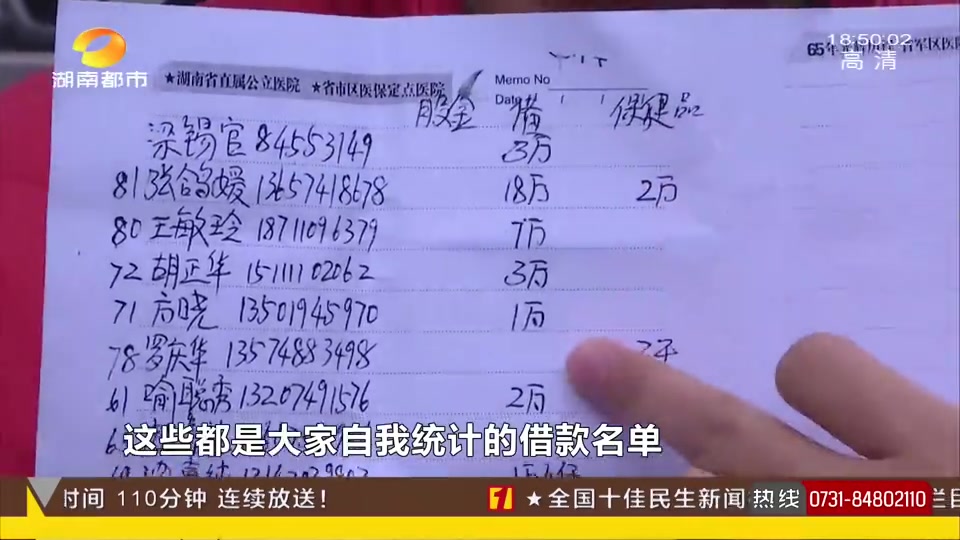 18:50:02
高清
湖南都市
65年
省军区医院
★湖南省直属公立医院 ★省市区医保定点医院
Memo No
Date / /
股金 借 保健品
梁锡官 84553149 3万
81 张鸽媛 13657418678 18万 2万
80 王敏玲 18711096379 7万
72 胡正华 15111102062 3万
71 方晓 13501945970 1万
78 罗庆华 13574883498
61 喻聪秀 13207491576 2万
这些都是大家自我统计的借款名单
时间 110分钟 连续放送!
1 ★全国十佳民生新闻
热线 0731-84802110
栏目